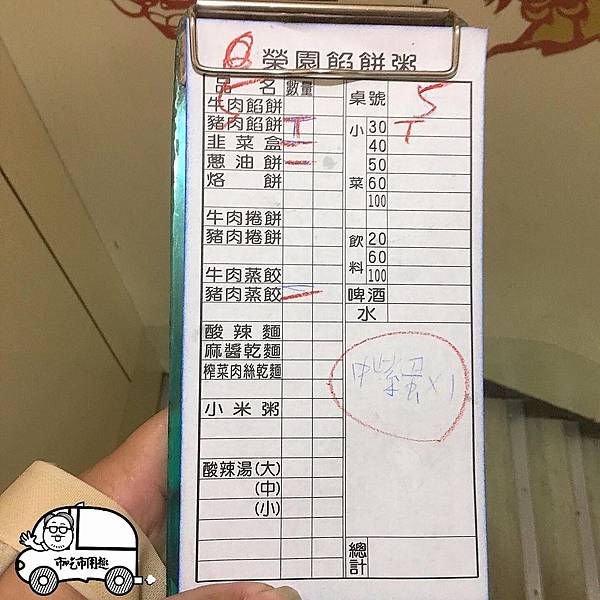 榮園餡餅粥
品名 數量 桌號 5
牛肉餡餅
豬肉餡餅 T
韭菜盒 一
蔥油餅 一
烙餅
牛肉捲餅
豬肉捲餅
牛肉蒸餃
豬肉蒸餃
酸辣麵
麻醬乾麵
榨菜肉絲乾麵
小米粥
酸辣湯(大)
(中)
(小)
小菜
30 T
40
50
60
100
飲料
20
60
100
啤酒
水
中紫蛋x1
總計
市吃市用趣